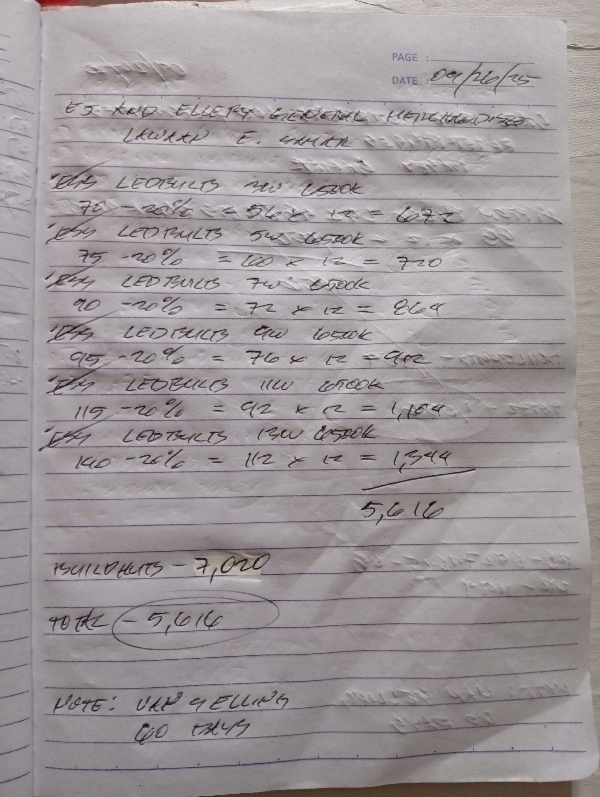 PAGE :
DATE : 09/26/25
EJ AND ELLERY GENERAL MERCHANDISE
LAWAAN E. SAMAR
LEDBULBS 3W 6500K
70 -20% = 56 x 12 = 672
LEDBULBS 5W 6500K
75 -20% = 60 x 12 = 720
LEDBULBS 7W 6500K
90 -20% = 72 x 12 = 864
LEDBULBS 9W 6500K
95 -20% = 76 x 12 = 912
LEDBULBS 11W 6500K
115 -20% = 92 x 12 = 1,104
LEDBULBS 13W 6500K
140 -20% = 112 x 12 = 1,344
5,616
- 7,020
TOTAL - 5,616
NOTE: VAN SELLING
60 DAYS